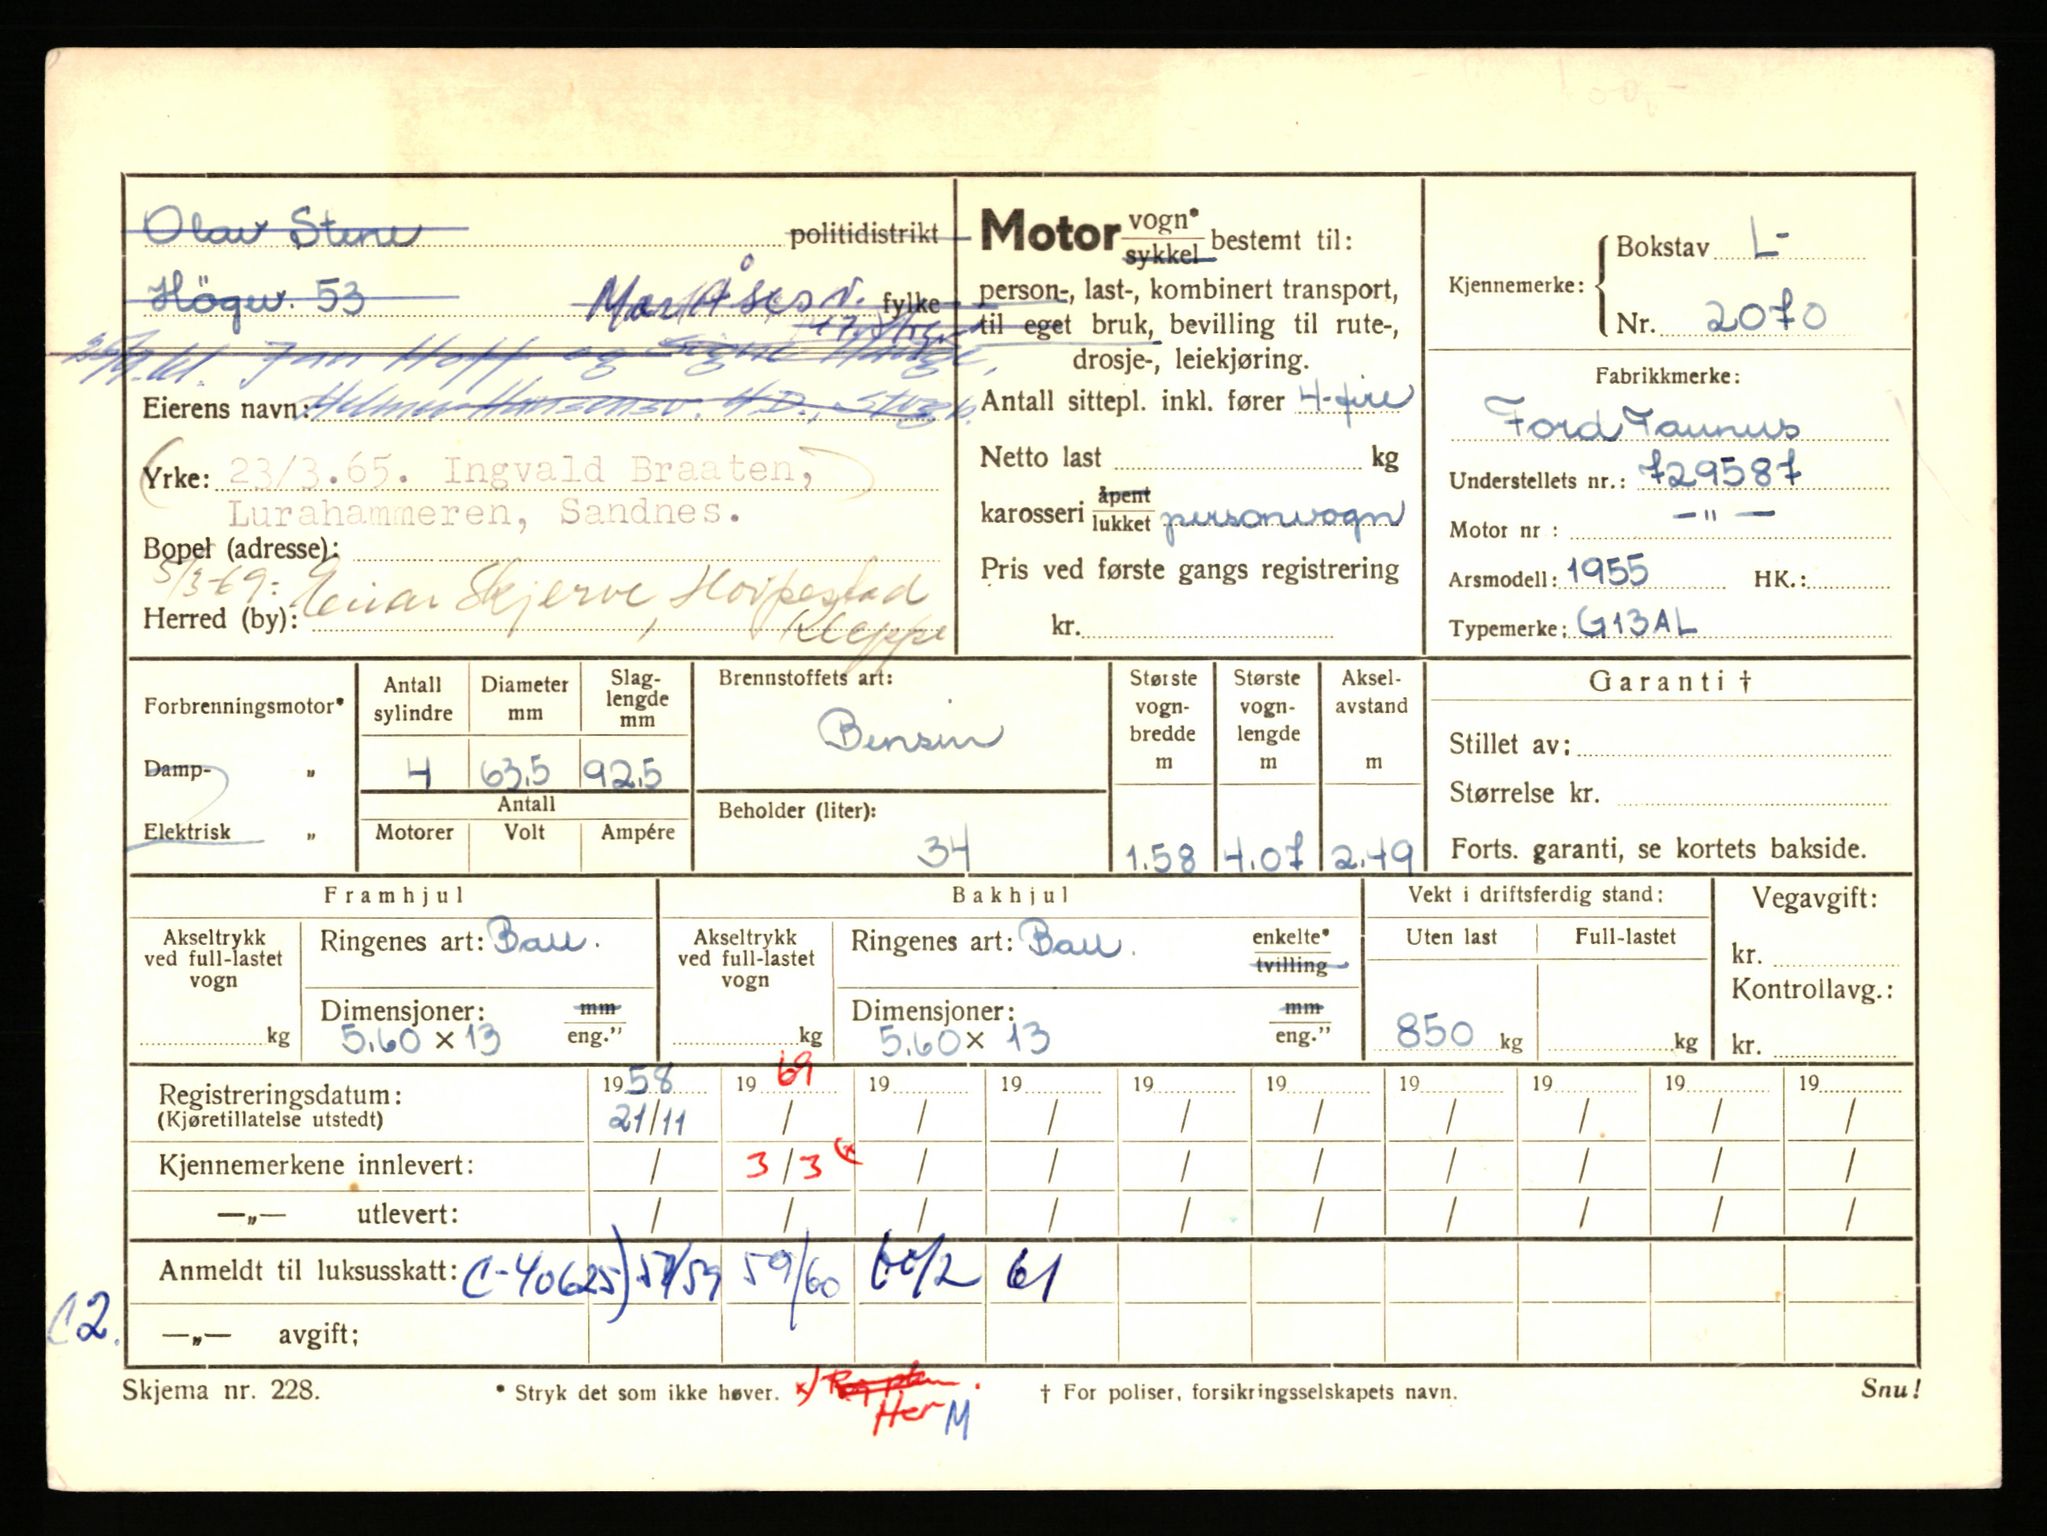 Olav Stene politidistrikt
Högv. 53 fylke
Eierens navn:
Yrke: 23/3.65. Ingvald Braaten,
Lurahammeren, Sandnes.
Bopel (adresse):
5/3-69: Einar Skjerve, Hoipestad
Herred (by): Kleppe
Motor vogn* sykkel bestemt til:
person-, last-, kombinert transport,
til eget bruk, bevilling til rute-,
drosje-, leiekjøring.
Antall sittepl. inkl. fører 4-fire
Netto last kg
karosseri åpent lukket personvogn
Pris ved første gangs registrering
kr.
Kjennemerke: Bokstav L-
Nr. 2070
Fabrikkmerke:
Ford Taunus
Understellets nr.: 729587
Motor nr : —"—
Arsmodell: 1955 HK.:
Typemerke: G13AL
Forbrenningsmotor*
Damp- „
Elektrisk „
Antall sylindre Diameter mm Slag-lengde mm
4 63.5 92.5
Antall
Motorer Volt Ampére
Brennstoffets art:
Bensin
Beholder (liter):
34
Største vogn-bredde m Største vogn-lengde m Aksel-avstand m
1.58 4.07 2.49
Garanti †
Stillet av:
Størrelse kr.
Forts. garanti, se kortets bakside.
Framhjul
Akseltrykk ved full-lastet vogn
kg
Ringenes art: Ball.
Dimensjoner: mm eng."
5.60 x 13
Bakhjul
Akseltrykk ved full-lastet vogn
kg
Ringenes art: Ball. enkelte* tvilling
Dimensjoner: mm eng."
5.60 x 13
Vekt i driftsferdig stand:
Uten last Full-lastet
850 kg kg
Vegavgift:
kr.
Kontrollavg.:
kr.
Registreringsdatum: 1958 1969 19 19 19 19 19 19 19 19
(Kjøretillatelse utstedt) 21/11 / / / / / / / / /
Kjennemerkene innlevert: / 3/3 (x / / / / / / / /
—„— utlevert: / / / / / / / / / /
Anmeldt til luksusskatt: C-40625) 57/59 59/60 60/2 61
C2.
—„— avgift;
Skjema nr. 228. * Stryk det som ikke høver. x) † For poliser, forsikringsselskapets navn. Snu!
Her M